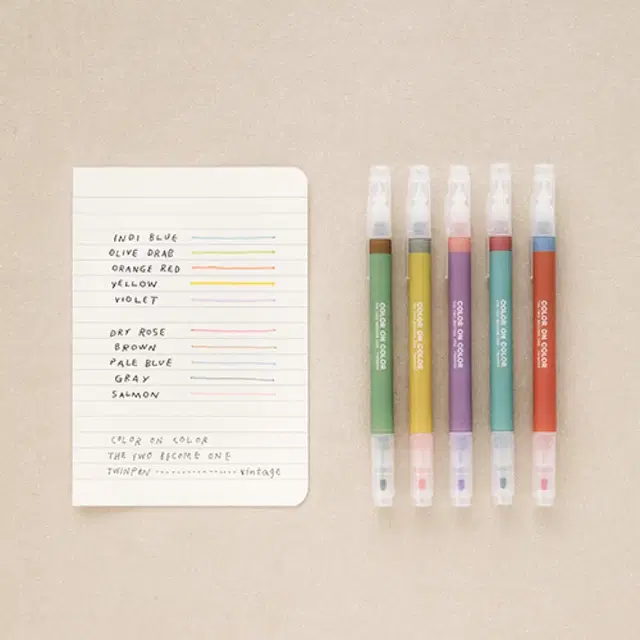 INDI BLUE
OLIVE DRAB
ORANGE RED
YELLOW
VIOLET
DRY ROSE
BROWN
PALE BLUE
GRAY
SALMON
COLOR ON COLOR
THE TWO BECOME ONE
TWINPEN ·············· vintage
COLOR ON COLOR
COLOR ON COLOR
COLOR ON COLOR
COLOR ON COLOR
COLOR ON COLOR